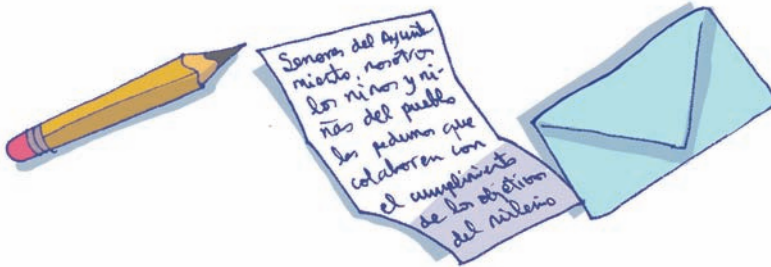 Senores del Ayunta
miento, nosotros
los niños y ni-
ñas del pueblo
les pedimos que
colaboren con
el cumplimiento
de los objetivos
del milenio